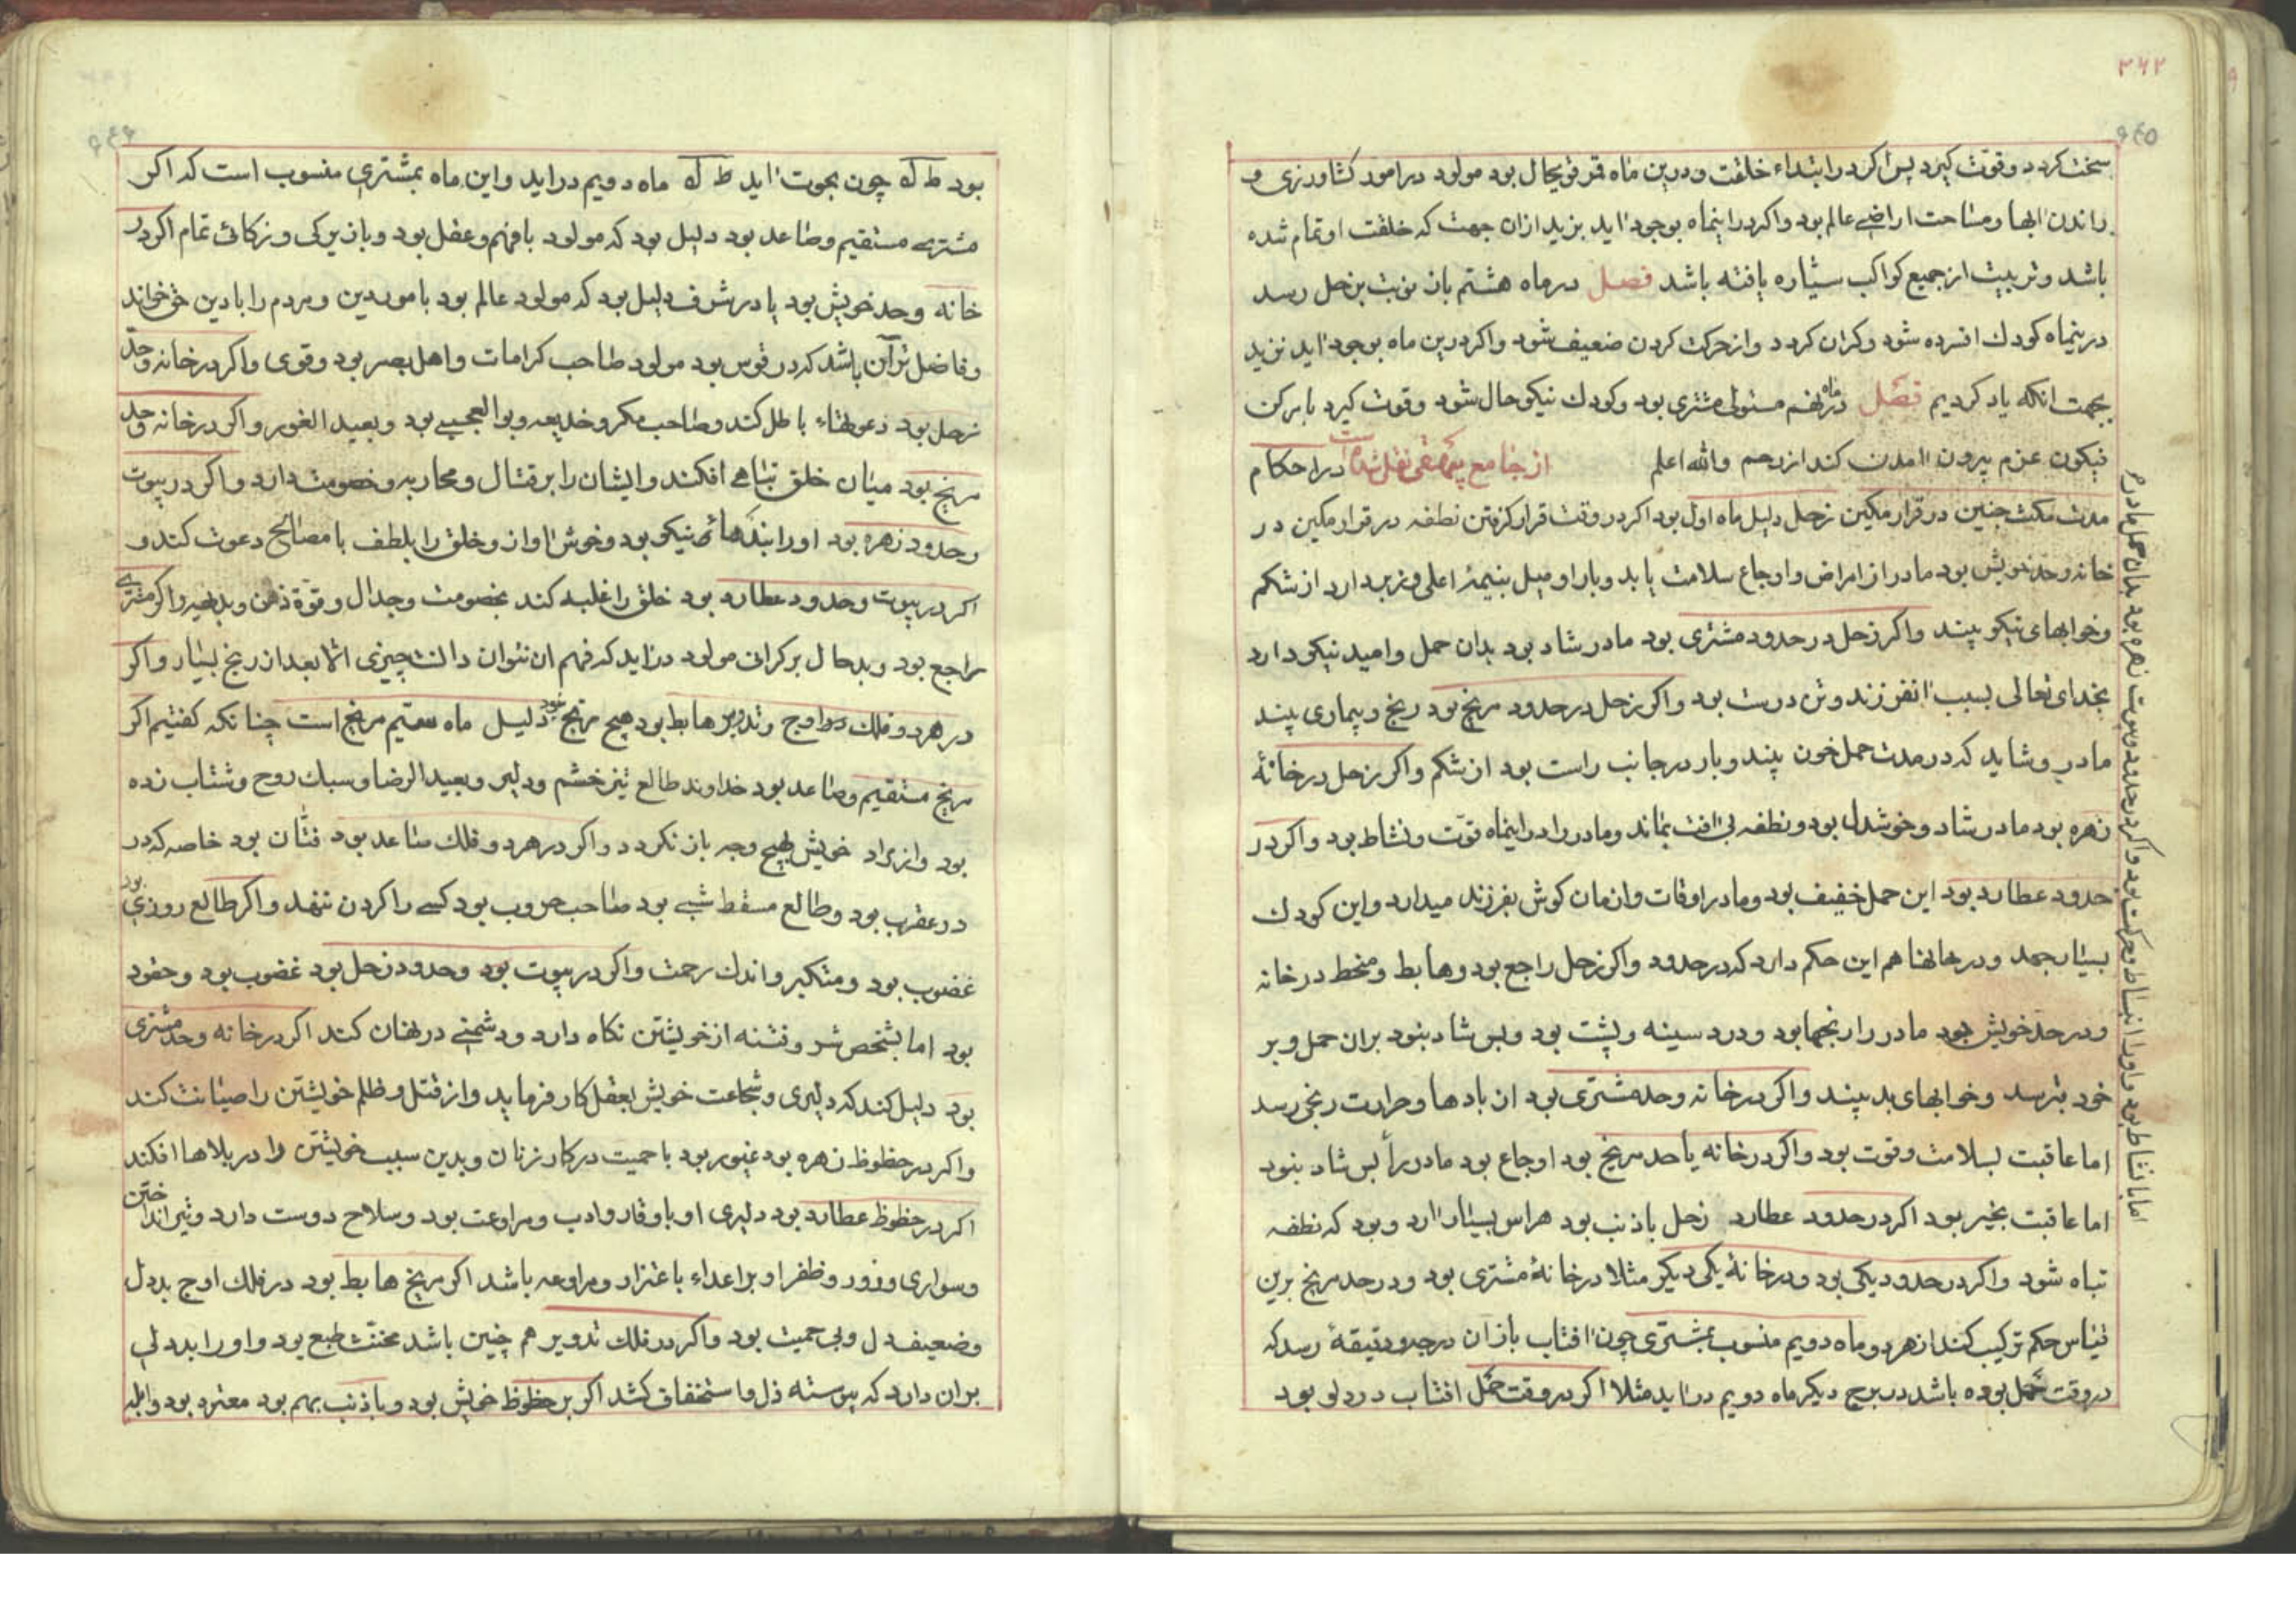 ۲۶۲
۹٤٥
سخت کردد وقوت کیرد پس اکر در ابتداء خلقت ودرین ماه قمر قویحال بود مولود در امور کشاورزی و
راندن ابها ومساحت اراضی عالم بود واکر دراینماه بوجود اید بزید ازان جهت که خلقت او تمام شده
باشد وتربیت از جمیع کواکب سیّاره یافته باشد فصل در ماه هشتم باز نوبت بزحل رسد
درینماه کودك افسرده شود وکران کردد واز حرکت کردن ضعیف شود واکر درین ماه بوجود اید نزید
بجهت انکه یاد کردیم فصل در ماه نهم مستولی مشتری بود وکودك نیکو حال شود وقوت کیرد بابرکن
نیکون عزم بیرون امدن کند از رحم والله اعلم از جامع نقل شده است در احکام
مدت مکث جنین در قرار مکین زحل دلیل ماه اول بود اکر در وقت قرار کرفتن نطفه در قرار مکین در
خانه وحد خویش بود مادر از امراض واوجاع سلامت یابد وبار او میل بنیمهٔ اعلی وزبر دارد از شکم
وخوابهای نیکو بیند واکر زحل در حدود مشتری بود مادر شاد بود بدان حمل وامید نیکو دارد
بخدای تعالی بسبب انفرزند وتن درست بود واکر زحل در حدود مریخ بود ریخ وبیماری بیند
مادر وشاید که در مدت حمل خون بیند وبار در جانب راست بود از شکم واکر زحل در خانهٔ
زهره بود مادر شاد وخوشدل بود ونطفه بی افت بماند ومادر را دراینماه قوّت ونشاط بود واکر در
حدود عطارد بود این حمل خفیف بود ومادر اوقات وازمان کوش بفرزند میدارد واین کودك
بسیار جهد ودر خانها هم این حکم دارد که در حدود واکر زحل راجع بود وهابط ومنحط در خانه
ودر حد خویش بود مادر را رنجها بود ودرد سینه وپشت بود وبس شاد بنود بران حمل وبر
خود بترسد وخوابهای بد بیند واکر در خانه وحد مشتری بود از بادها وحرارت رنجی رسد
اما عاقبت بسلامت وقوت بود واکر در خانه یا حد مریخ بود اوجاع بود مادر را بس شاد بنود
اما عاقبت بخیر بود اکر در حدود عطارد زحل باذنب بود هراس بسیار ارد وبود که نطفه
تباه شود واکر در حدود یکی بود ودر خانهٔ یکی دیکر مثلا در خانهٔ مشتری بود ودر حد مریخ برین
قیاس حکم ترکیب کند از هر دو ماه دویم منسوب بمشتری چون افتاب بازان درجه ودقیقهٔ رسد که
در وقت حمل بوده باشد در برج دیکر ماه دویم دراید مثلا اکر در وقت حمل افتاب در دلو بود
اما با نشاط بود واورا انبساط وحرکت بود واکر در حدود وبیوت زهره بود بدان حمل مادرم
۹٤۶
بود ط که چون بحوت اید ط که ماه دویم دراید واین ماه بمشتری منسوب است که اکر
مشتری مستقیم وصاعد بود دلیل بود که مولود بافهم وعقل بود وبا زیرکی وزکائی تمام اکر در
خانه وحد خویش بود یا در شرف دلیل بود که مولود عالم بود بامور دین ومردم را بادین حق خواند
وفاضل تر آن باشد که در قوس بود مولود صاحب کرامات واهل بصر بود وقوی واکر در خانه وحدّ
زحل بود دعویهاء باطل کند وصاحب مکر وخدیعه وبوالعجبی بود وبعید الغور واکر در خانه وحد
مریخ بود میان خلق تباهی افکند وایشان را بر قتال ومحاربه وخصومت دارد واکر در بیوت
وحدود زهره بود اورا نیکو بود وخوش اواز وخلق را بلطف با مصالح دعوت کند و
اکر در بیوت وحدود عطارد بود خلق را غلبه کند بخصومت وجدال وقوّة ذهن وبدیهه واکر مشتری
راجع بود وبدحال بر کرانی مولود دراید که فهم ان نتوان دانست چیزی الا بعد از رنج بسیار واکر
در هر دو فلك اوج وتدویر هابط بود هیچ مریخ دلیل ماه سیّم مریخ است چنانکه کفتیم اکر
مریخ مستقیم وصاعد بود خداوند طالع تیز خشم ودلیر وبعید الرضا وسبك روح وشتاب زده
بود واز مراد خویش بهیچ وجه باز نکردد واکر در هر دو فلك صاعد بود فتّان بود خاصه که در
در عقرب بود وطالع مسقط شبی بود صاحب حروب بود کسی را کردن ننهد واکر طالع روزی بود
غضوب بود ومتکبر واندك رحمت واکر در بیوت بود وحدود زحل بود غضوب بود وحقود
بود اما بشخص شر وفتنه از خویشتن نکاه دارد ودشمنی در نهان کند اکر در خانه وحد مشتری
بود دلیل کند که دلیری وشجاعت خویش بعقل کار فرماید واز قتل وظلم خویشتن را صیانت کند
واکر در حظوظ زهره بود غیور بود با حمیت در کار زنان وبدین سبب خویشتن را در بلاها افکند
اکر در حظوظ عطارد بود دلیری او با وقار وادب ومراوغت بود وسلاح دوست دارد وتیر انداختن
وسواری وزور وظفر او بر اعداء باغترار ومراوغه باشد اکر مریخ هابط بود در فلك اوج بددل
وضعیف دل وبی حمیت بود واکر در فلك تدویر هم چنین باشد مخنّث طبع بود واورا بددلی
بران دارد که پیوسته ذل واستخفاف کشد اکر بر حظوظ خویش بود وباذنب بهم بود معترد بود وابله